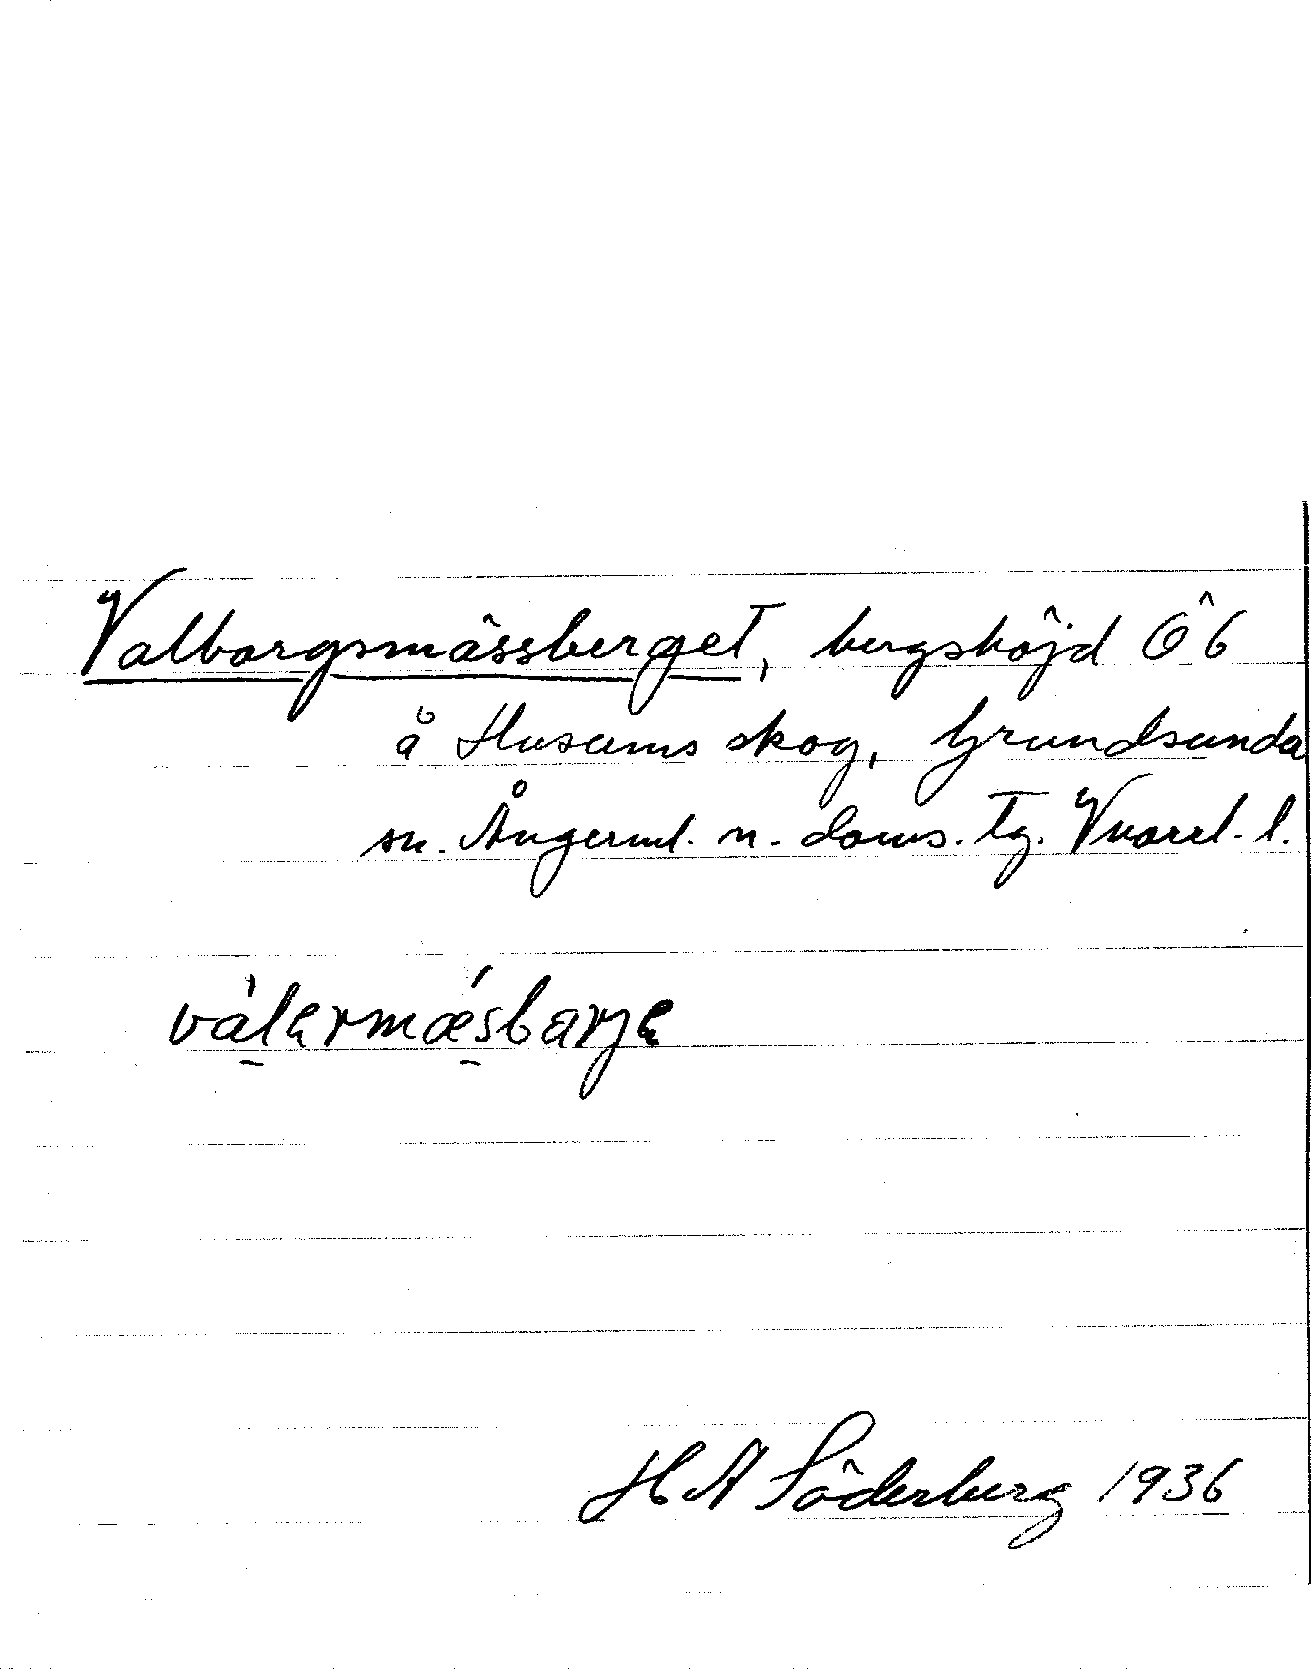 Valborgsmässberget, bergshöjd Ö 6
å Husums skog, Grundsunda
sn. Ångerml. n. doms. Tg. Vnorrl. l.
vàlermǽsbarje
H A Söderberg 1936